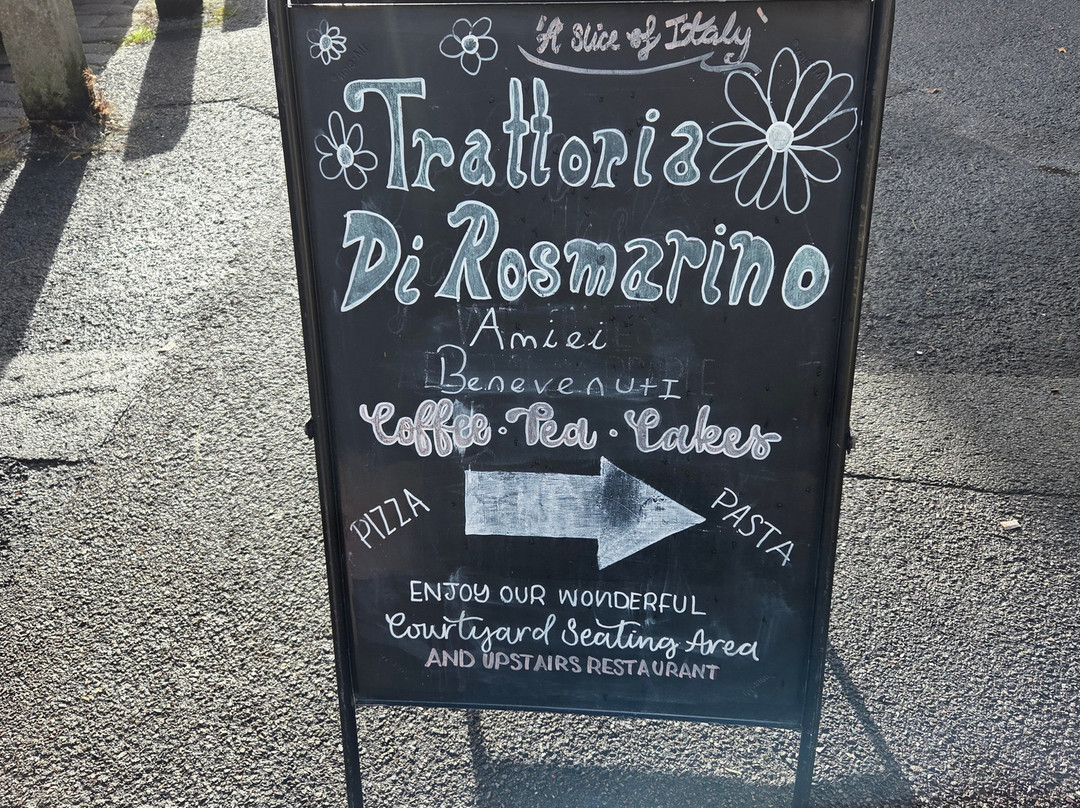 'A slice of Italy'
Trattoria
Di Rosmarino
Amici
Benevenuti
Coffee · Tea · Cakes
PIZZA
PASTA
ENJOY OUR WONDERFUL
Courtyard Seating Area
AND UPSTAIRS RESTAURANT